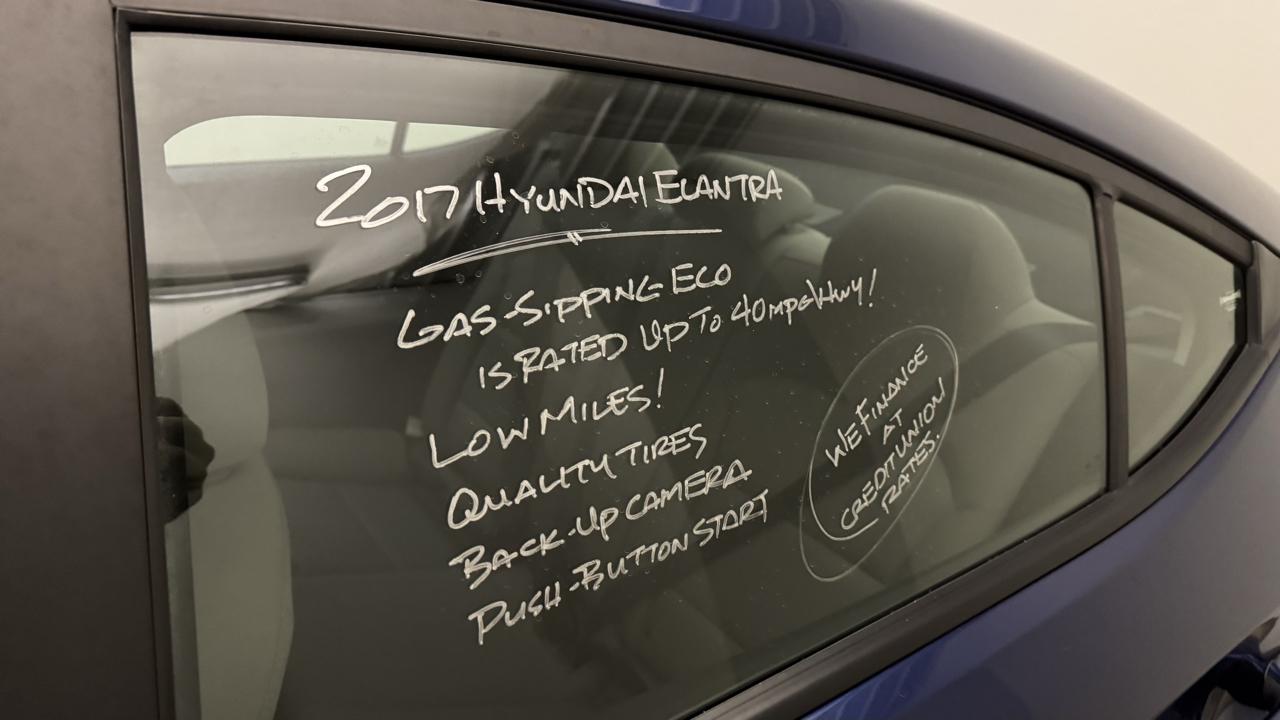 2017 HYUNDAI ELANTRA
GAS-SIPPING ECO
IS RATED UP TO 40MPG HWY!
LOW MILES!
QUALITY TIRES
BACK-UP CAMERA
PUSH-BUTTON START
WE FINANCE
AT
CREDIT UNION
RATES.